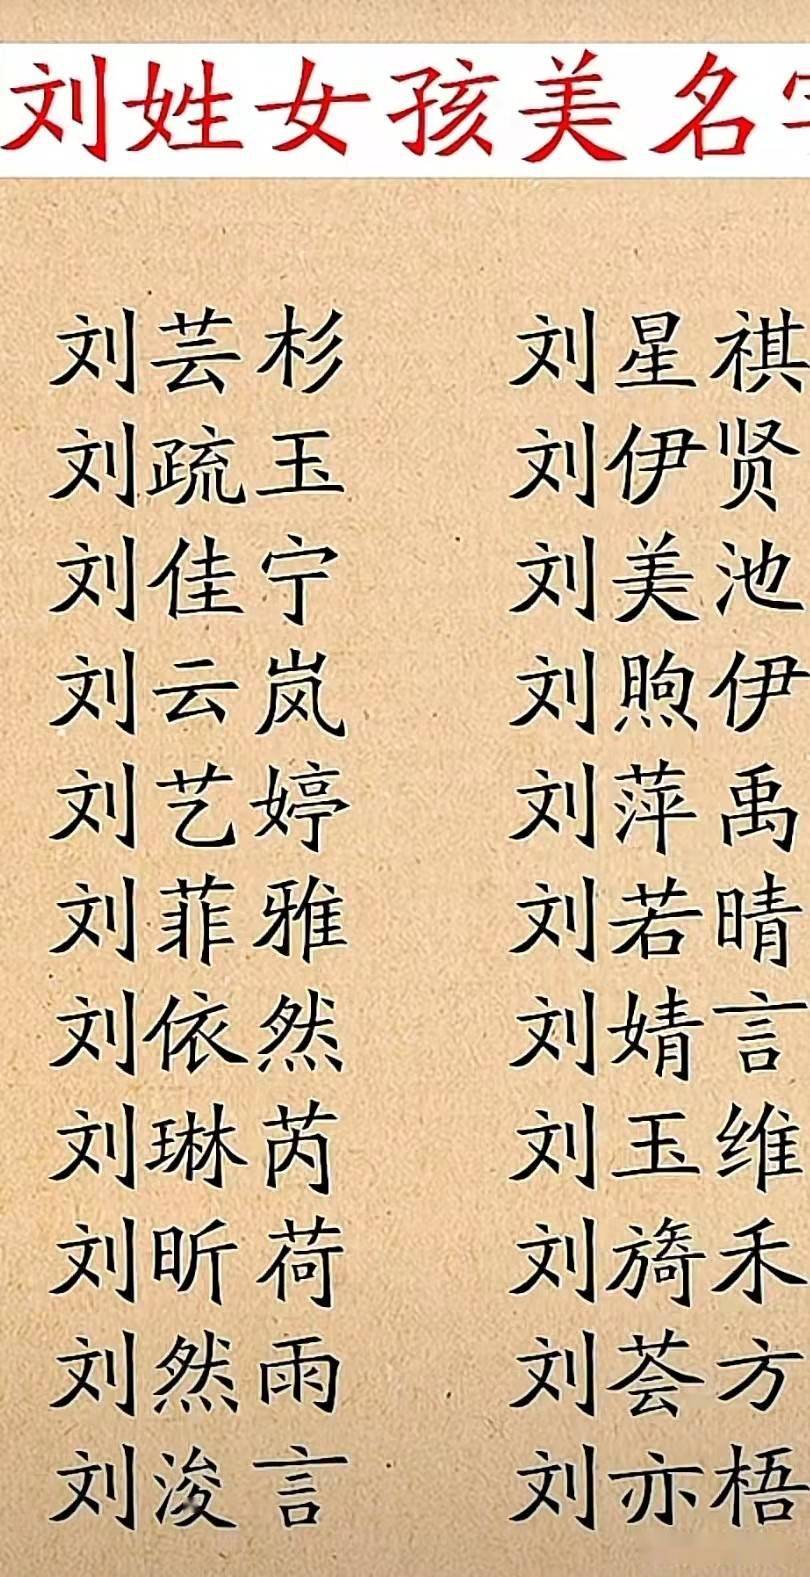 刘姓女孩美名字
刘芸杉 刘星祺
刘疏玉 刘伊贤
刘佳宁 刘美池
刘云岚 刘煦伊
刘艺婷 刘萍禹
刘菲雅 刘若晴
刘依然 刘婧言
刘琳芮 刘玉维
刘昕荷 刘旖禾
刘然雨 刘荟方
刘浚言 刘亦梧